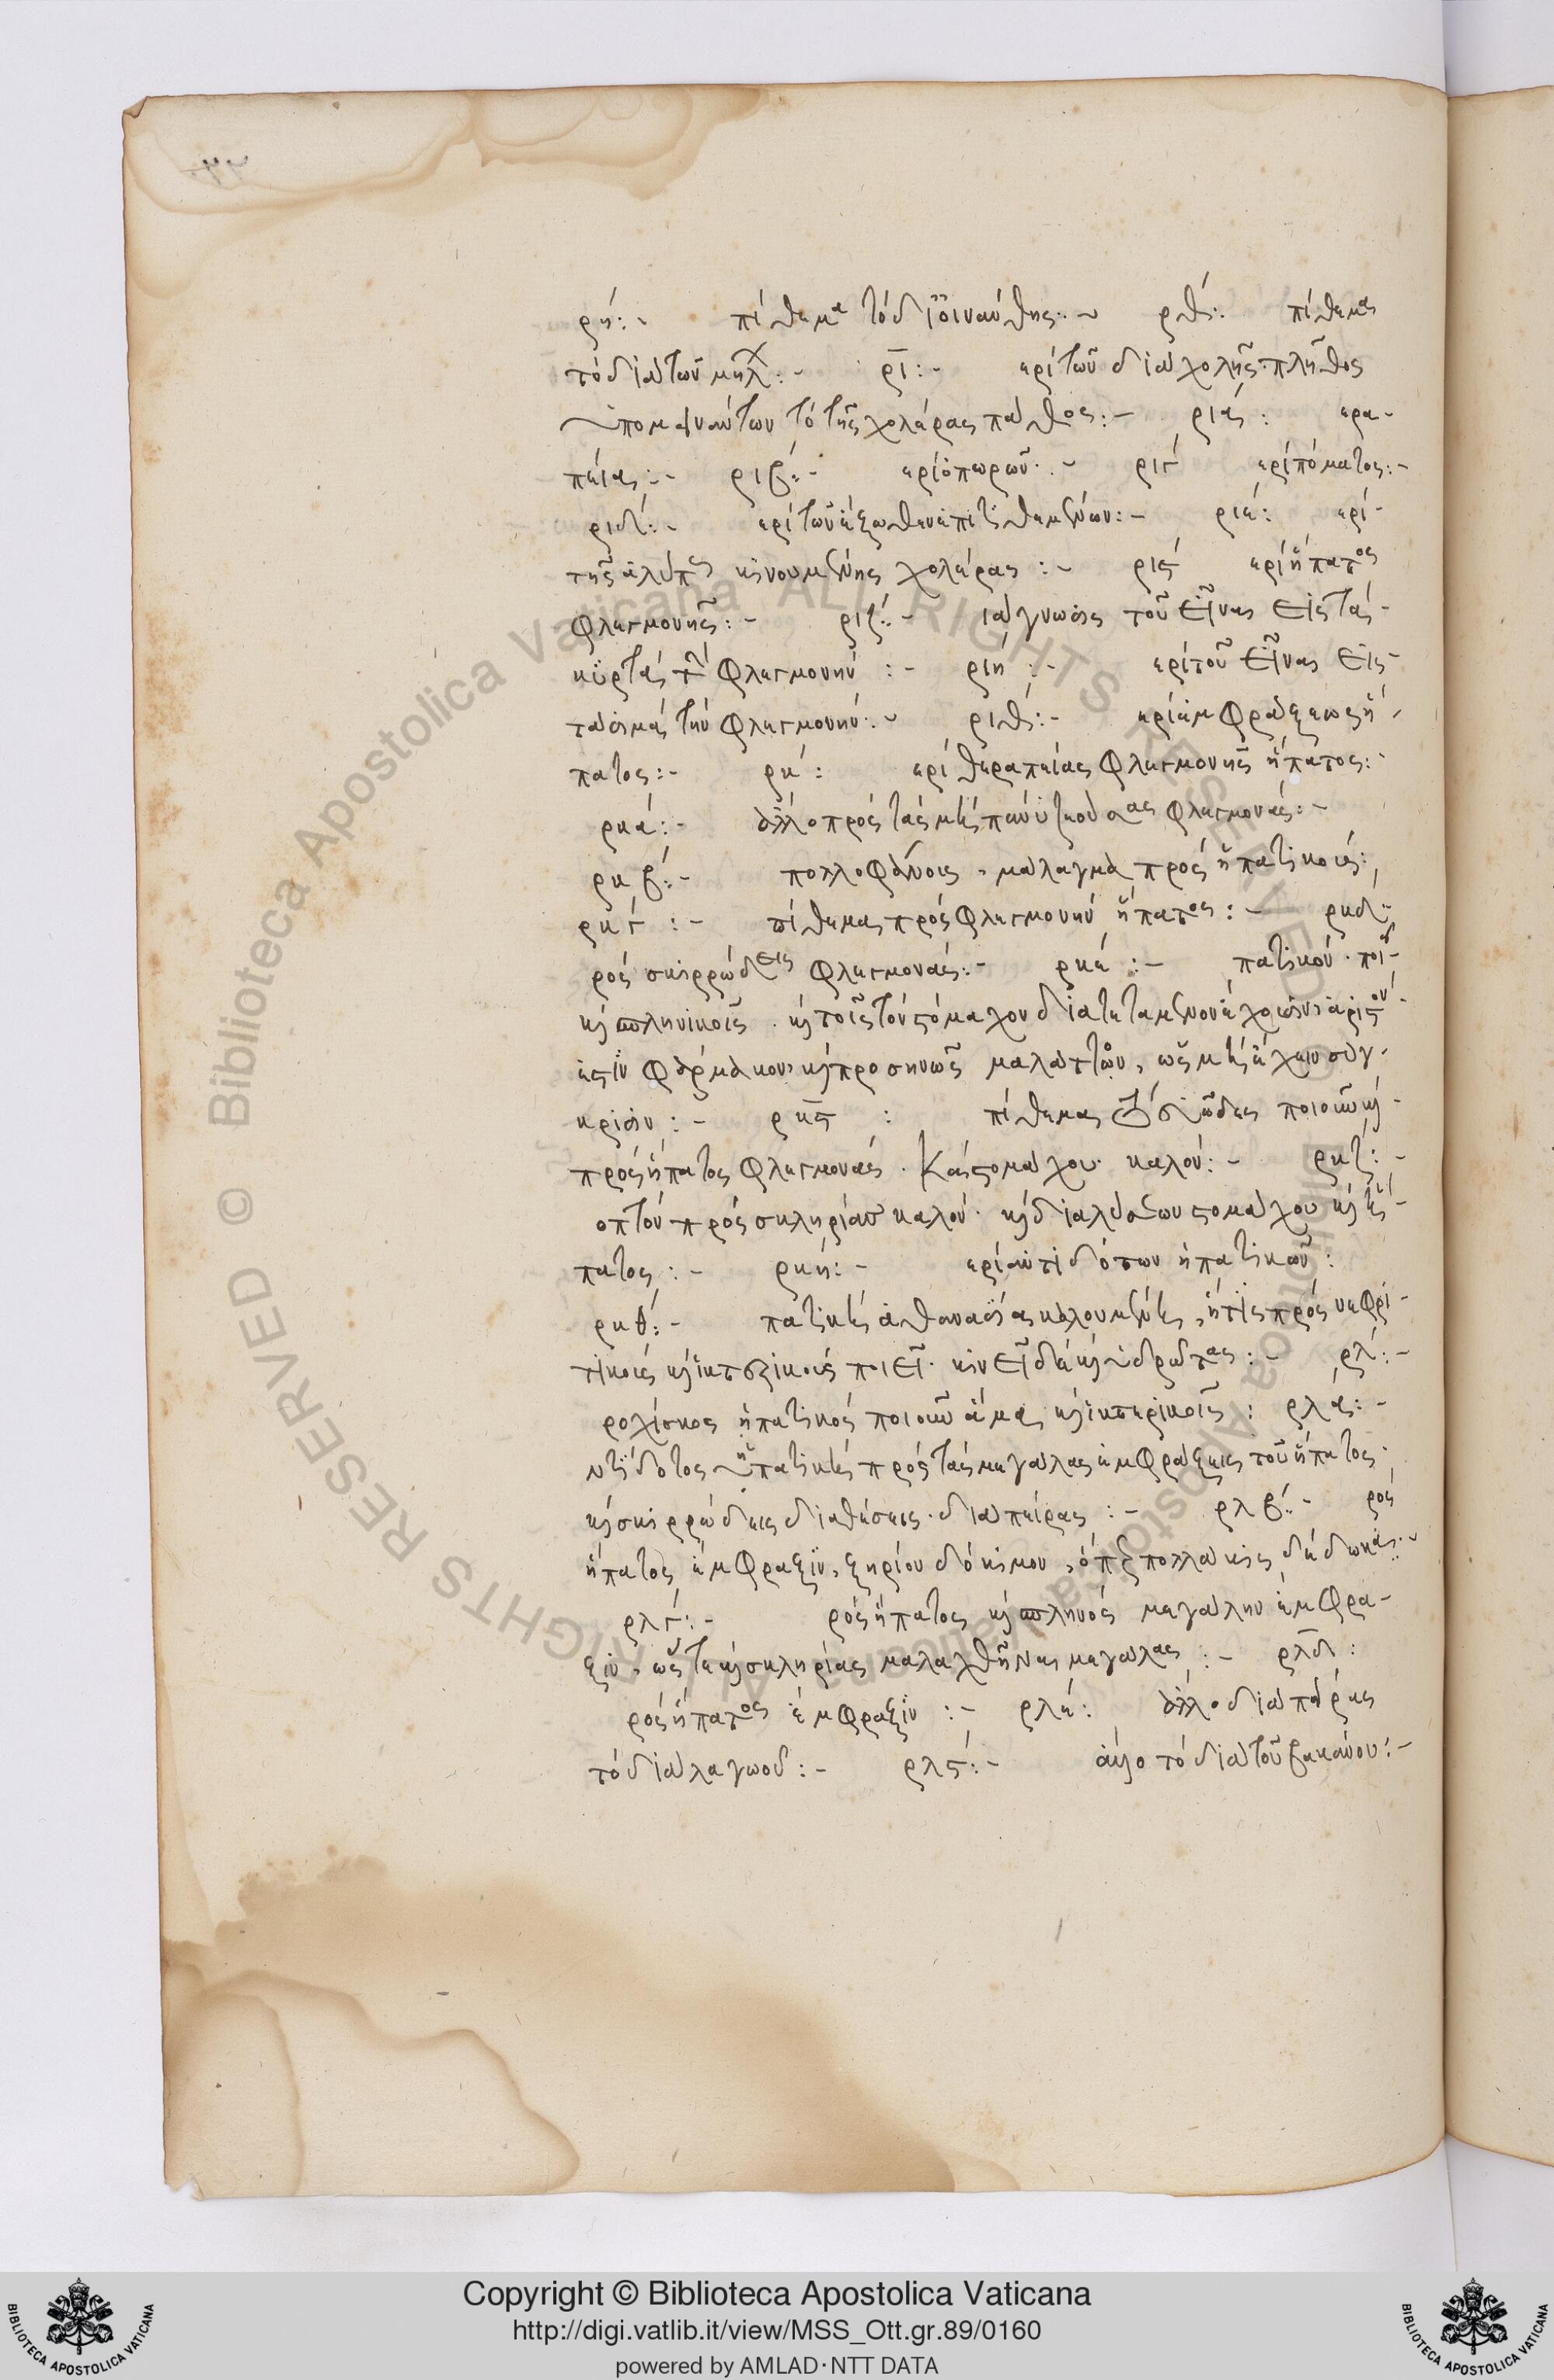 ρη΄:- πίθεμα τὸ δι οἰνάνθης:~ ρθ΄: πίθεμα
τὸ διὰ τῶν μηλ:- ρι:- ερὶ τῶν διὰ χολῆς πλῆθος
ὑπομεινάντων τὸ τῆς χολέρας πάθος:- ρια΄: ερα-
πείας:- ριβ΄:- ερὶ ὀπωρῶν:- ριγ΄ ερὶ πόματος:-
ριδ΄:- ερὶ τῶν ἔξωθεν ἐπιτιθεμένων:- ριε΄: ερὶ
τῆς κινουμένης χολέρας:- ριϛ΄ ερὶ ἥπατος
φλεγμονῆς:- ριζ΄:- ιάγνωσις τοῦ εἶναι εἰς τὰ
κυρτὰ τὴν φλεγμονήν:- ριη΄:- ερὶ τοῦ εἶναι εἰς
τὰ σιμὰ τὴν φλεγμονήν:~ ριθ΄:- ερὶ ἐμφράξεως ἥ-
πατος:- ρκ΄: ερὶ θεραπείας φλεγμονῆς ἥπατος:-
ρκα΄:- ἄλλο πρὸς τὰς μὴ πάνυ ζεούσας φλεγμονάς:-
ρκβ΄:- μάλαγμα πρὸς ἡπατικούς:
ρκγ΄:- πίθεμα πρὸς φλεγμονὴν ἥπατος:- ρκδ:-
ρὸς σκιρρώδεις φλεγμονάς:- ρκε΄:- πατικὸν ποιοῦν
καὶ σπληνικοῖς. καὶ τοῖς τὸν στόμαχον διατεταμένον ἔχουσιν ἄριστον
ἐστὶ φάρμακον, καὶ προσηνῶς μαλάττον, ὡς μὴ ἔχειν σύγ-
κρισιν:- ρκϛ: πίθεμα εὐῶδες ποιοῦν καὶ
πρὸς ἥπατος φλεγμονάς. καὶ στομάχου καλόν:- ρκζ:-
οπτὸν πρὸς σκληρίαν καλόν. καὶ διαλύσεων στομάχου καὶ ἥ-
πατος:- ρκη΄:- ερὶ ἀντιδότων ἡπατικῶν:
ρκθ΄:- πατικὴ ἀθανασία καλουμένη, ἥτις πρὸς νεφρι-
τικοὺς καὶ ἰκτερικοὺς ποιεῖ. κινεῖ δὲ καὶ ἱδρῶτας:- ρλ΄:-
ροχίσκος ἡπατικὸς ποιοῦν ἅμα καὶ ἰκτερικοῖς: ρλα΄:-
ντίδοτος ἡπατικὴ πρὸς τὰς μεγάλας ἐμφράξεις τοῦ ἥπατος
καὶ σκιρρώδεις διαθέσεις. διὰ πείρας:- ρλβ΄:- ρὸς
ἥπατος ἔμφραξιν, ξηρίον δόκιμον, ὅπερ πολλάκις δέδωκα:~
ρλγ΄:- ρὸς ἥπατος καὶ σπληνὸς μεγάλην ἔμφρα-
ξιν, ὥστε καὶ σκληρίας μαλαχθῆναι μεγάλας:- ρλδ:
ρὸς ἥπατος ἔμφραξιν:- ρλε΄: ἄλλο διὰ πείρας
τὸ διὰ λαγωοῦ:- ρλϛ΄:- ἄλλο τὸ διὰ τοῦ βακάνου:-
Copyright © Biblioteca Apostolica Vaticana
http://digi.vatlib.it/view/MSS_Ott.gr.89/0160
powered by AMLAD·NTT DATA